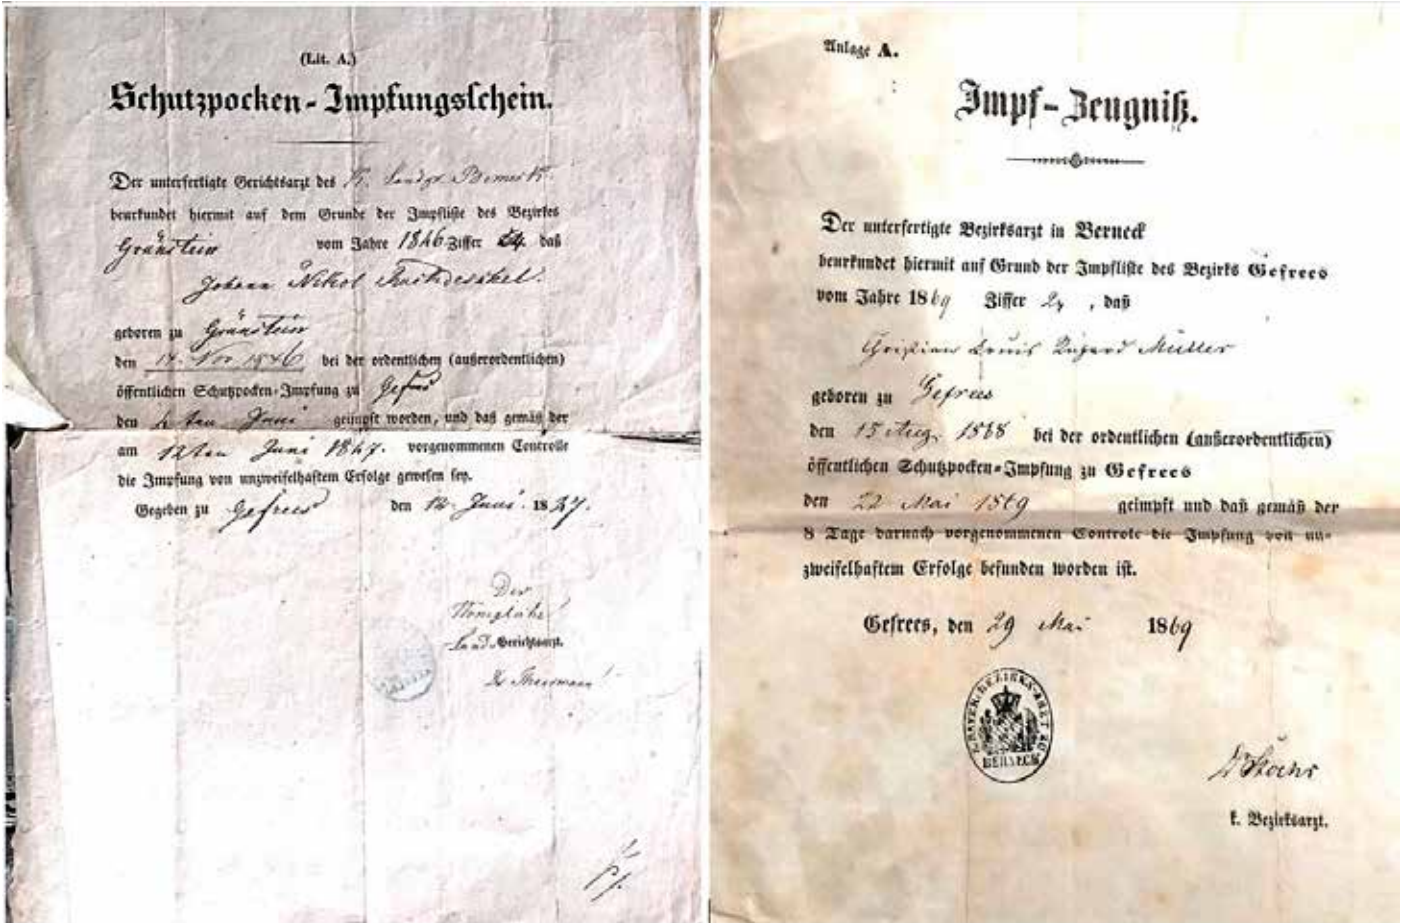 (Lit. A.)
Schutzpocken-Impfungsschein.
Der unterfertigte Gerichtsarzt des K. Landgr. Berneck
beurkundet hiermit auf dem Grunde der Impfliste des Bezirkes
Grünstein vom Jahre 1846 Ziffer daß
Johann Nikol
geboren zu Grünstein
den 14. Nov 1846 bei der ordentlichen (außerordentlichen)
öffentlichen Schutzpocken-Impfung zu Gefrees
den ten Juni geimpft worden, und daß gemäß der
am 12ten Juni 1847. vorgenommenen Controlle
die Impfung von unzweifelhaftem Erfolge gewesen sey.
Gegeben zu Gefrees den 12. Juni. 1847.
Der
Königliche
Land-Gerichtsarzt.
Dr
Anlage A.
Impf-Zeugniß.
Der unterfertigte Bezirksarzt in Berneck
beurkundet hiermit auf Grund der Impfliste des Bezirks Gefrees
vom Jahre 1869 Ziffer 24, daß
Christian Louis Müller
geboren zu Gefrees
den 15 Aug. 1868 bei der ordentlichen (außerordentlichen)
öffentlichen Schutzpocken-Impfung zu Gefrees
den 22 Mai 1869 geimpft und daß gemäß der
8 Tage darnach vorgenommenen Controle die Impfung von un-
zweifelhaftem Erfolge befunden worden ist.
Gefrees, den 29 Mai 1869
K. BAYER. BEZIRKS-ARZT ZU
BERNECK
Dr Stöhr
k. Bezirksarzt.